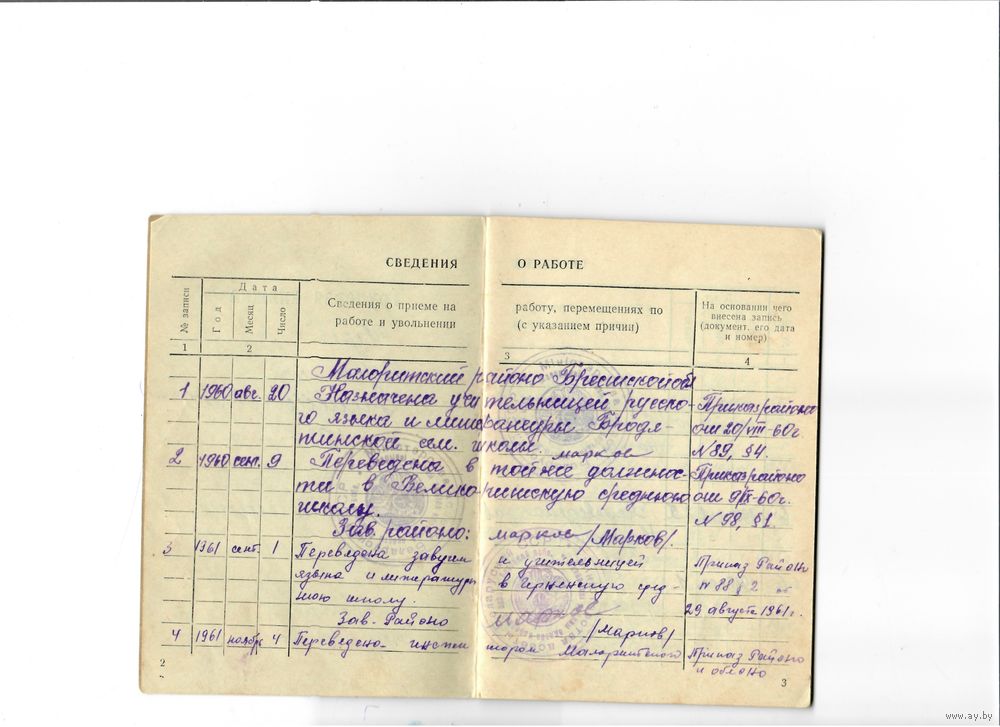 СВЕДЕНИЯ О РАБОТЕ
№ записи
Дата
Год
Месяц
Число
Сведения о приеме на работу, перемещениях по
работе и увольнении (с указанием причин)
На основании чего
внесена запись
(документ, его дата
и номер)
1 2 3 4
Малоритский районо Брестской об
1 1960 авг. 20 Назначена учительницей русско- Приказ районо
го языка и литературы Городя- от 20/VIII-60г.
тинской сем. школы. Марков №89, §4.
2 1960 сент. 9 Переведена в той же должнос- Приказ районо
ти в Велико-ритскую среднюю от 9/IX-60г.
школу. №98, §1.
Зав. районо: Марков /Марков/.
3 1961 сент. 1 Переведена завучем и учительницей Приказ Районо
языка и литературы в сред- № 88 § 2 от
нюю школу. 29 августа 1961 г.
Зав. Районо Марков
/Марков/
4 1961 ноябр. 4 Переведена инспек тором Малоритского Приказ Районо
и облоно
2
3
www.ay.by